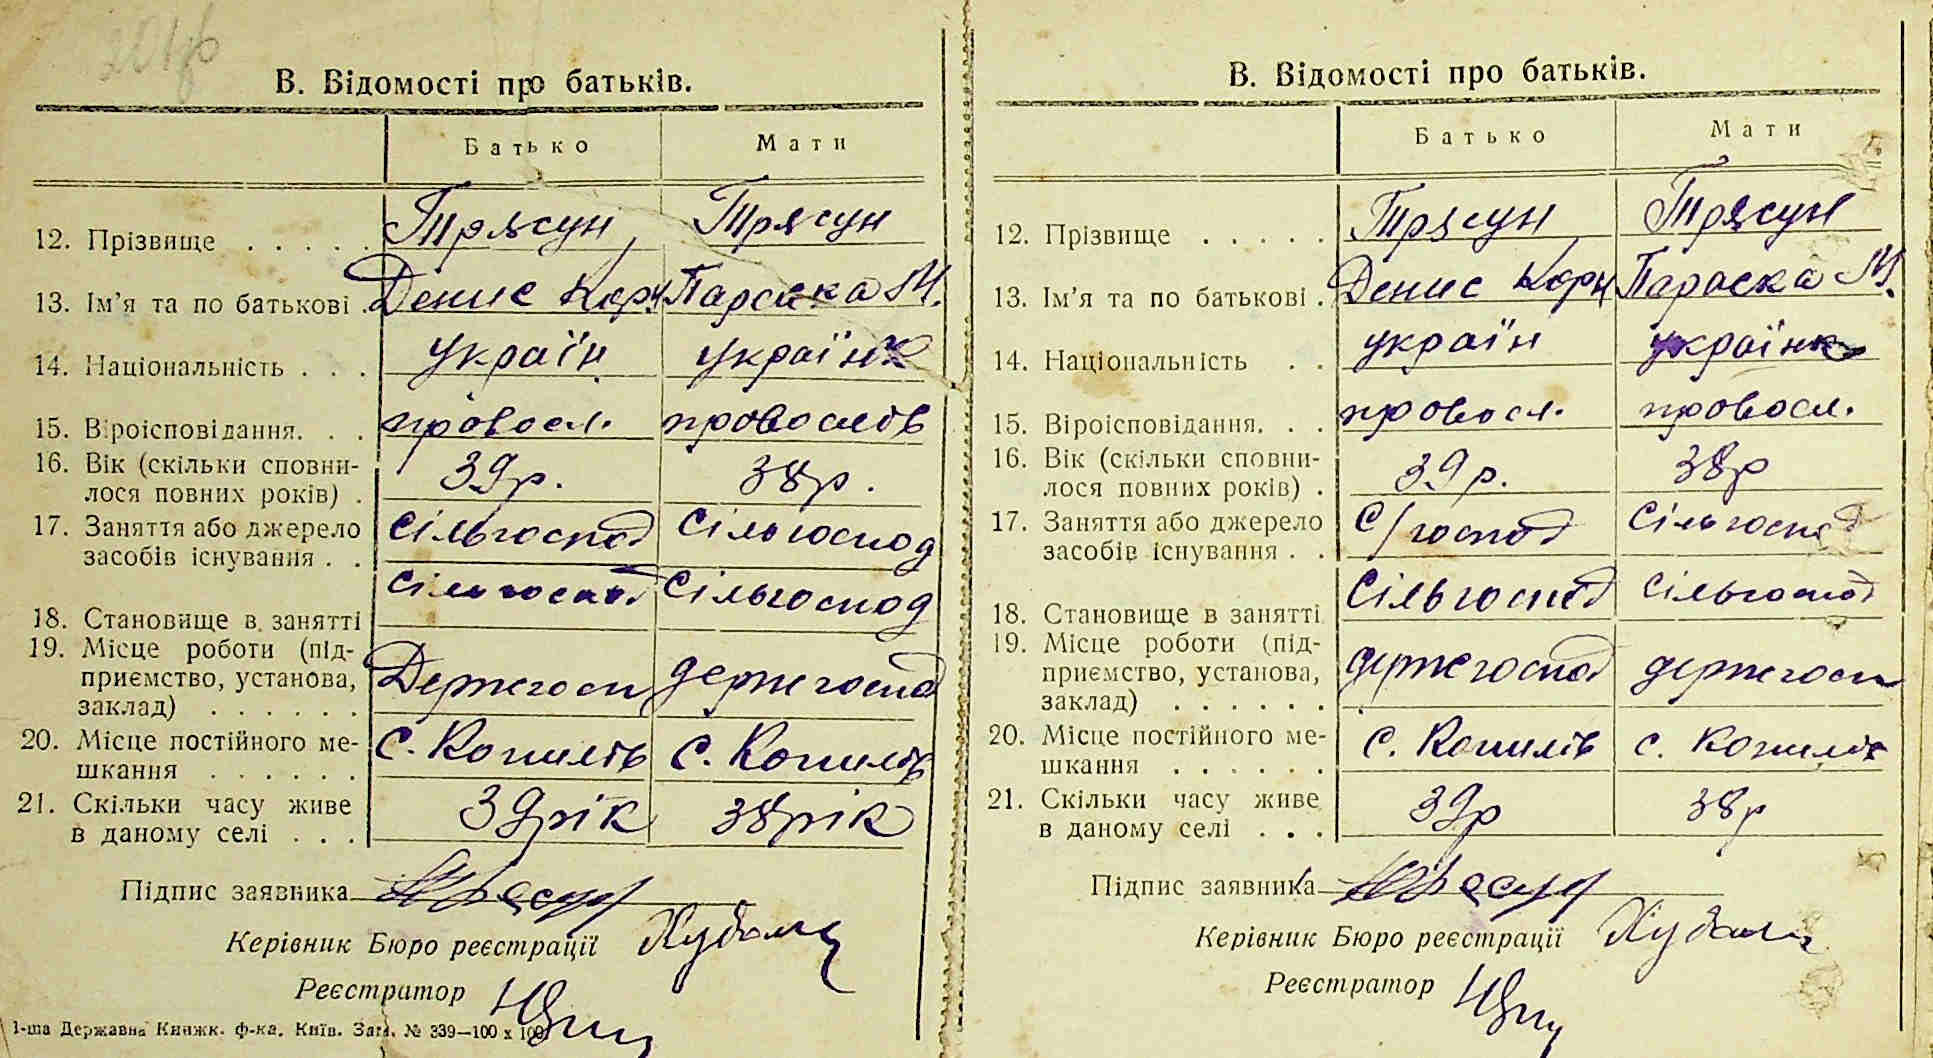 В. Відомості про батьків.
Батько Мати
12. Прізвище . . . . . Трясун Трясун
13. Ім'я та по батькові . Денис Корн Параска М.
14. Національність . . . україн українк
15. Віроісповідання. . . провосл. провослав
16. Вік (скільки сповни-
лося повних років) . 39р. 38р.
17. Заняття або джерело
засобів існування . . Сільгоспод Сільгоспод
18. Становище в занятті Сільгоспод Сільгоспод
19. Місце роботи (під-
приємство, установа,
заклад) . . . . . . Держгосп держгоспод
20. Місце постійного ме-
шкання . . . . . . С. Копилів С. Копилів
21. Скільки часу живе
в даному селі . . . 39рік 38рік
Підпис заявника Трясун
Керівник Бюро реєстрації
Реєстратор
1-ша Державна Книжк. ф-ка. Київ. Зам. № 339—100 х 100
В. Відомості про батьків.
Батько Мати
12. Прізвище . . . . . Трясун Трясун
13. Ім'я та по батькові . Денис Корн Параска М.
14. Національність . . україн українк
15. Віроісповідання. . . провосл. провосл.
16. Вік (скільки сповни-
лося повних років) . 39р. 38р
17. Заняття або джерело
засобів існування . . С/господ Сільгоспод
18. Становище в занятті Сільгоспод Сільгоспод
19. Місце роботи (під-
приємство, установа,
заклад) . . . . . . держгоспод держгосп
20. Місце постійного ме-
шкання . . . . . . С. Копилів с. Копилів
21. Скільки часу живе
в даному селі . . . 39р 38р
Підпис заявника Трясун
Керівник Бюро реєстрації
Реєстратор